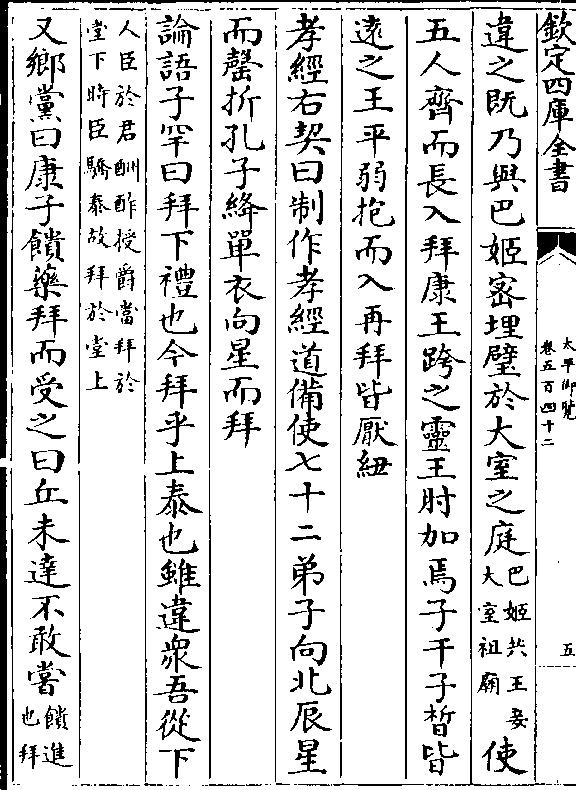 欽定四庫全書
太平御覽
卷五百四十二
五
違之既乃與巴姬密埋璧於大室之庭巴姬共王妾大室祖廟使
五人齊而長入拜康王跨之靈王肘加焉子干子晳皆
遠之王平弱抱而入再拜皆厭紐
孝經右契曰制作孝經道備使七十二弟子向北辰星
而罄折孔子絳單衣向星而拜
論語子罕曰拜下禮也今拜乎上泰也雖違衆吾從下
人臣於君酬酢授爵當拜於堂下時臣驕泰故拜於堂上
又鄉黨曰康子饋藥拜而受之曰丘未達不敢嘗饋進也拜